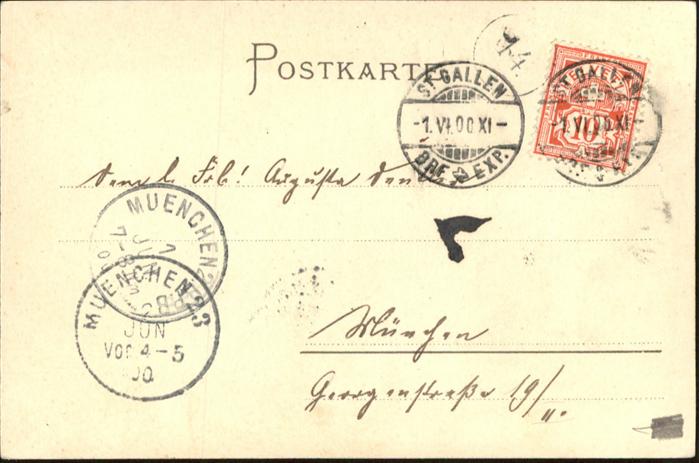 POSTKARTE
74
ST. GALLEN
-1.VI.00 XI-
BRF. EXP.
ST. GALLEN
-1.VI.00 XI-
10
Frl! Augusta
MUENCHEN
7-8
MUENCHEN 23
JUN
VOR 4-5
00
München
Georgenstraße 19/II.